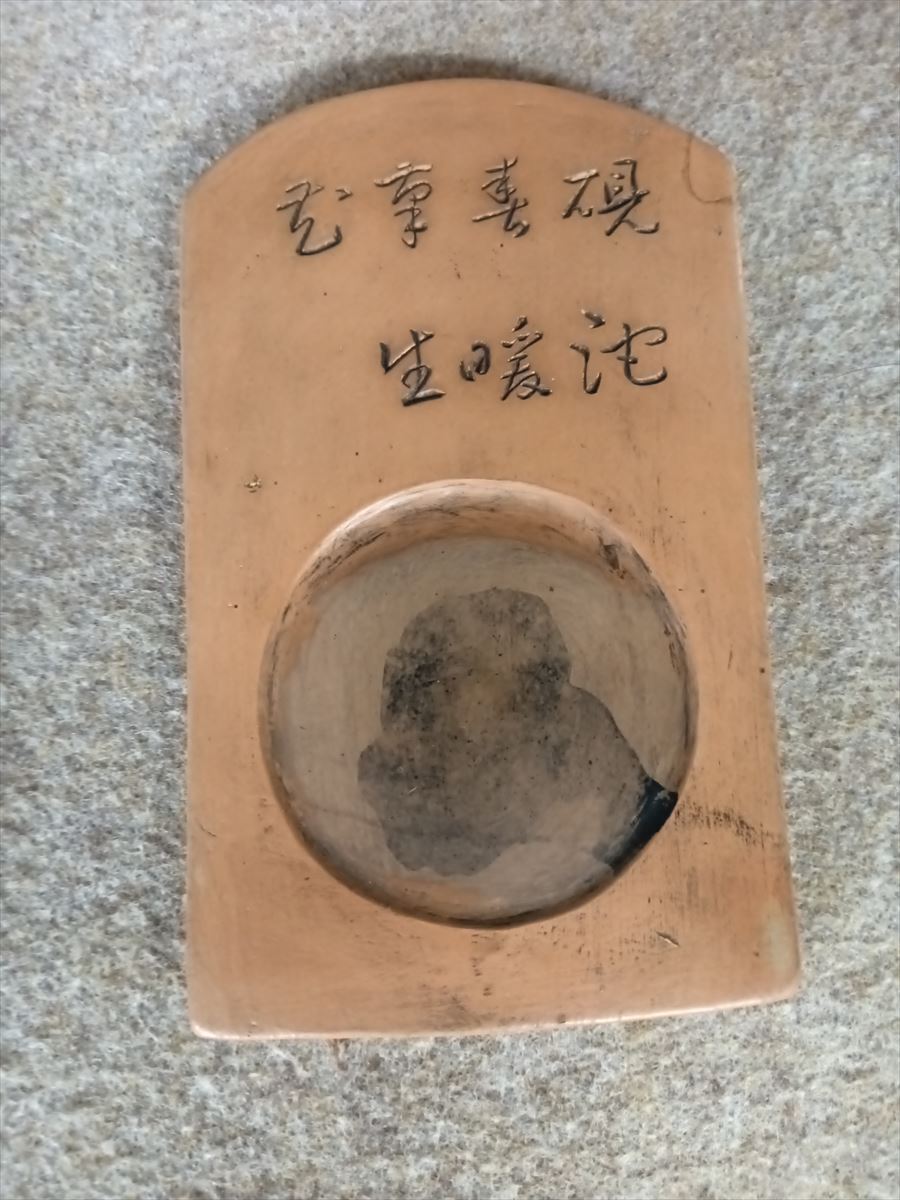 硯池
春暖
筆生
花